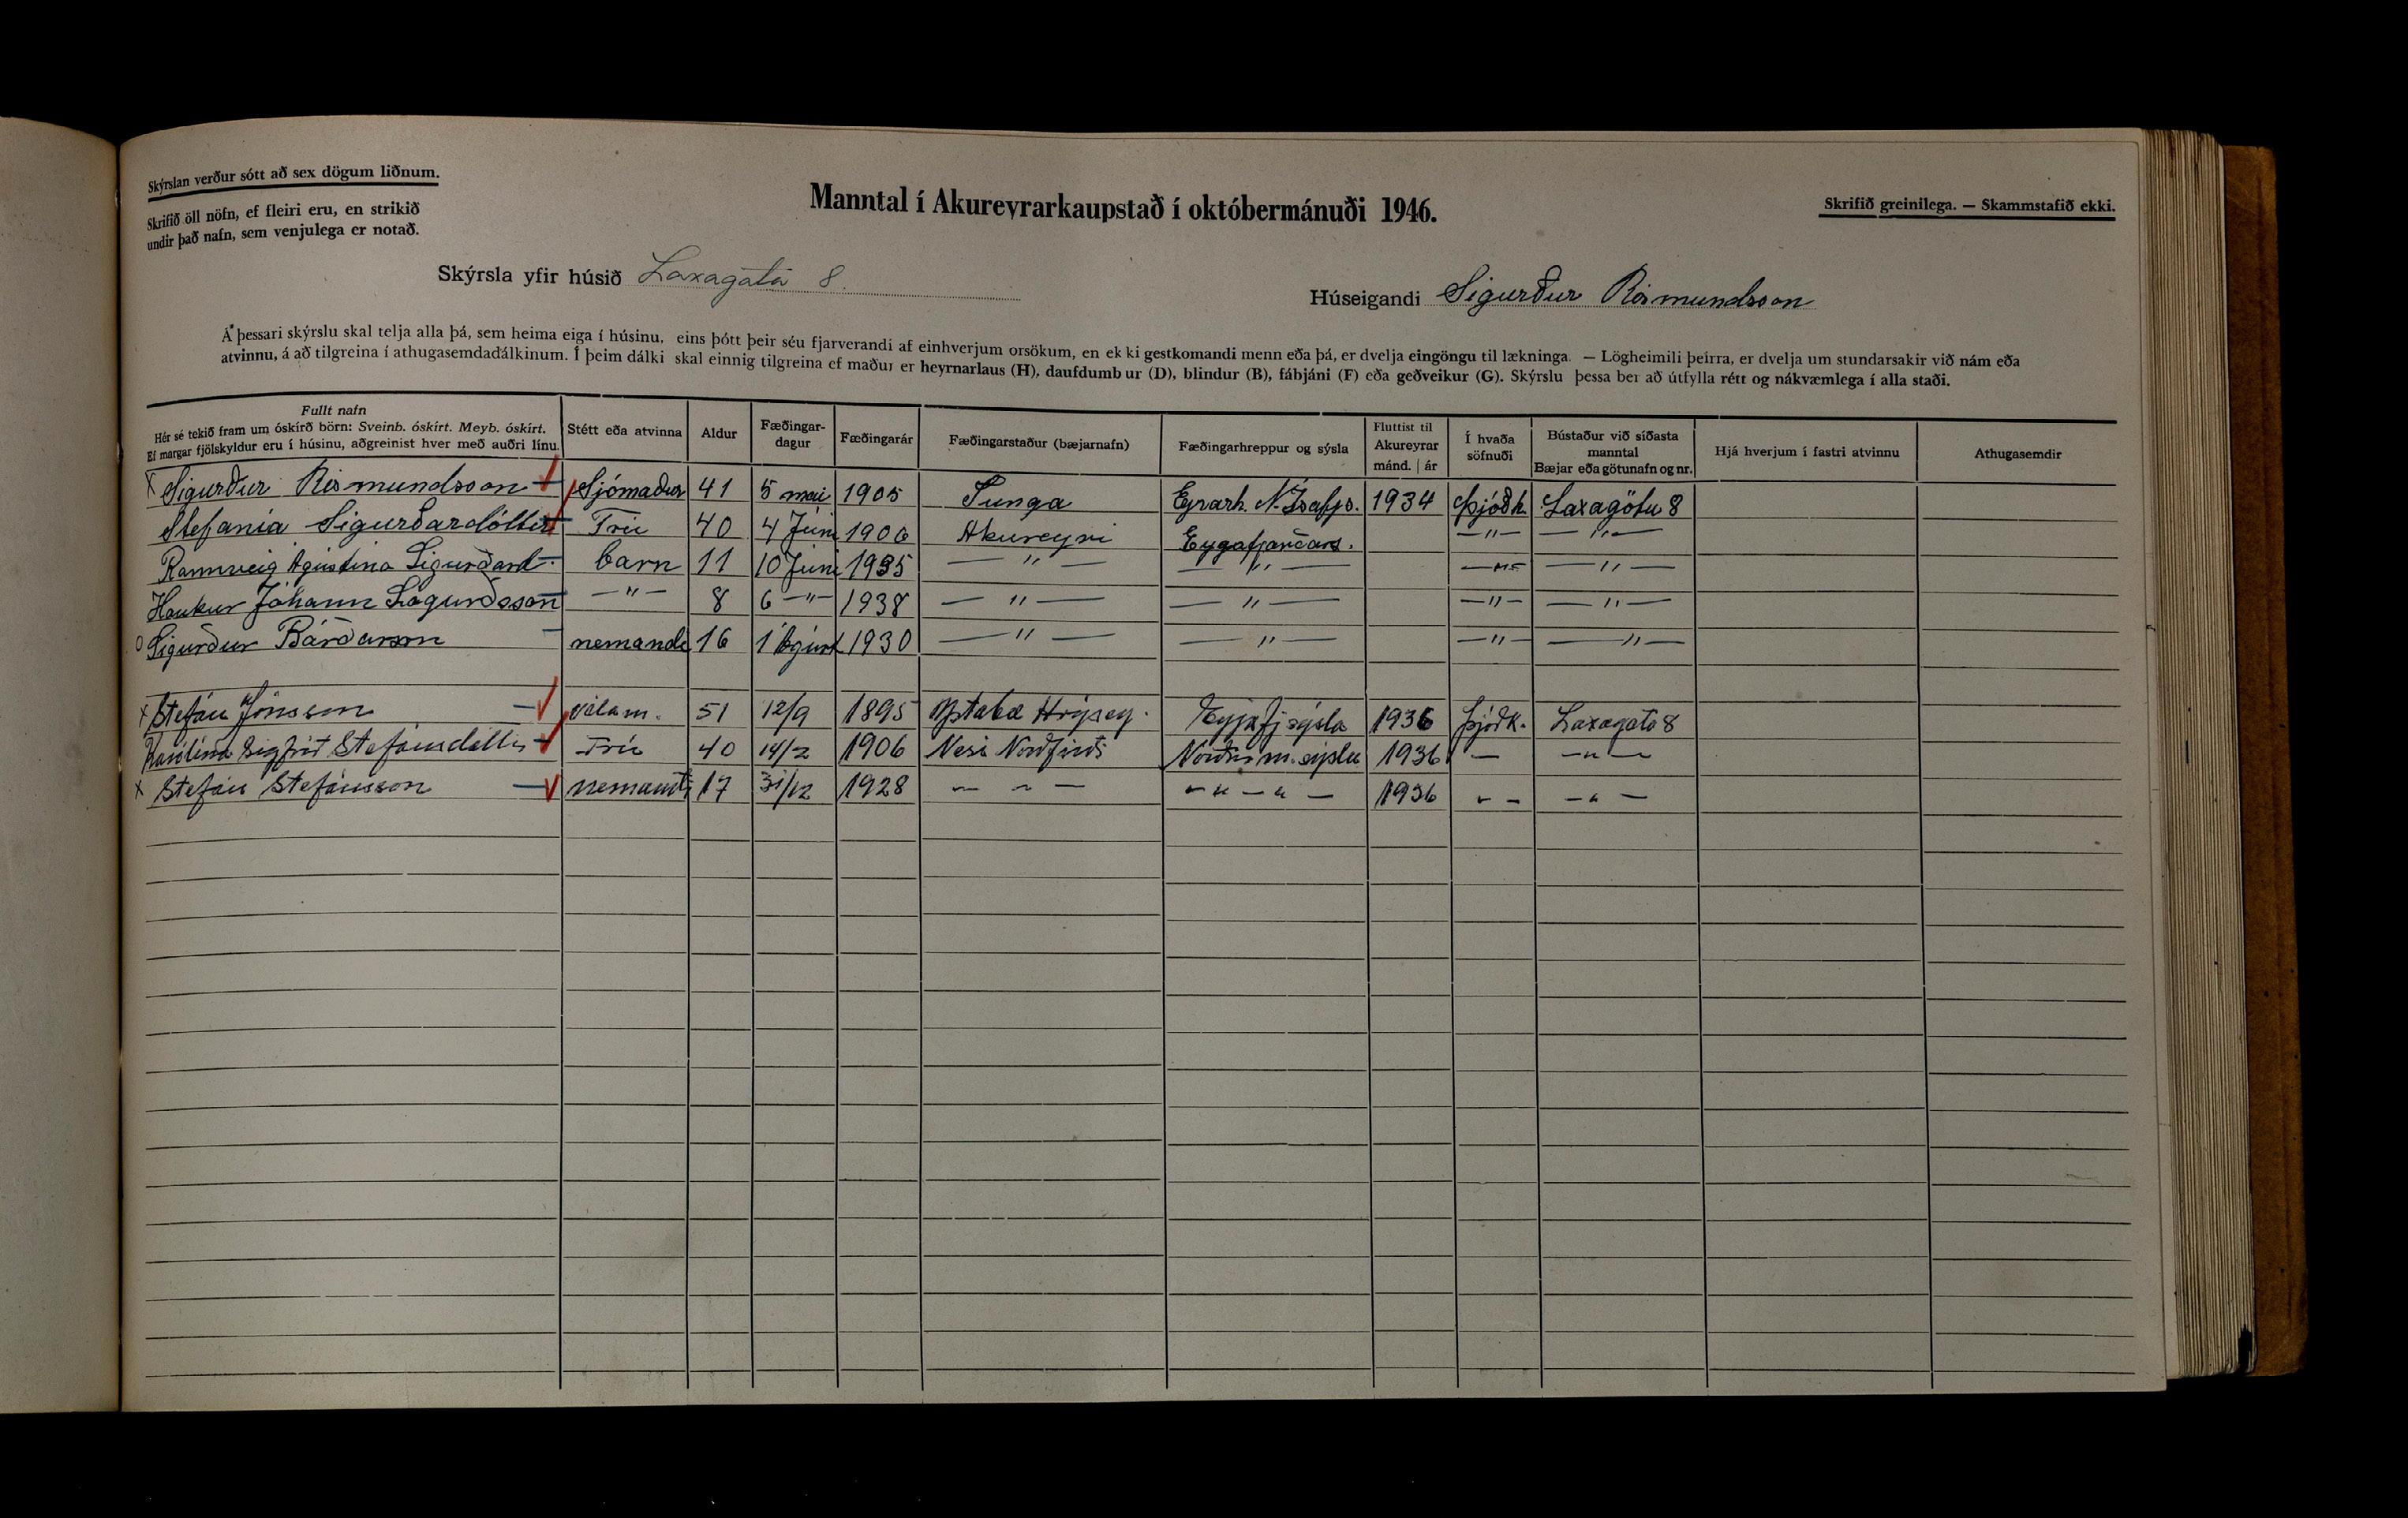 Skýrslan verður sótt að sex dögum liðnum.
Skrifið öll nöfn, ef fleiri eru, en strikið
undir það nafn, sem venjulega er notað.
Manntal í Akureyrarkaupstað í októbermánuði 1946.
Skrifið greinilega. — Skammstafið ekki.
Skýrsla yfir húsið Laxagata 8.
Húseigandi Sigurður Rósmundsson
Á þessari skýrslu skal telja alla þá, sem heima eiga í húsinu, eins þótt þeir séu fjarverandi af einhverjum orsökum, en ekki gestkomandi menn eða þá, er dvelja eingöngu til lækninga. — Lögheimili þeirra, er dvelja um stundarsakir við nám eða
atvinnu, á að tilgreina í athugasemdadálkinum. Í þeim dálki skal einnig tilgreina ef maður er heyrnarlaus (H), daufdumbur (D), blindur (B), fábjáni (F) eða geðveikur (G). Skýrslu þessa ber að útfylla rétt og nákvæmlega í alla staði.
Fullt nafn
Hér sé tekið fram um óskírð börn: Sveinb. óskírt. Meyb. óskírt.
Ef margar fjölskyldur eru í húsinu, aðgreinist hver með auðri línu.
Stétt eða atvinna
Aldur
Fæðingar-
dagur
Fæðingarár
Fæðingarstaður (bæjarnafn)
Fæðingarhreppur og sýsla
Fluttist til
Akureyrar
mánd. | ár
Í hvaða
söfnuði
Bústaður við síðasta
manntal
Bæjar eða götunafn og nr.
Hjá hverjum í fastri atvinnu
Athugasemdir
x Sigurður Rósmundsson Sjómaður 41 5 maí 1905 Tunga Eyrarh. N-Ísafjs. 1934 Þjóðk. Laxagötu 8
Stefanía Sigurðardóttir Frú 40 4 Júní 1906 Akureyri Eyjafjarðars. —"— —"—
Rannveig Ágústína Sigurðard. barn 11 10 Júní 1935 —"— —"— —"— —"—
Haukur Jóhann Sigurðsson —"— 8 6 —"— 1938 —"— —"— —"— —"—
o Sigurður Bárðarson nemandi 16 1 Ágúst 1930 —"— —"— —"— —"—
x Stefán Jónsson 51 12/9 1895 Ystabæ Hrísey. Eyjafj.sýsla 1936 Þjóðk. Laxagata 8
Karólína Sigfríð Stefánsdóttir Frú 40 14/2 1906 Nesi Norðfirði Norður m. sýslu 1936 — —"—
x Stefán Stefánsson nemandi 17 31/12 1928 — " — — " — " — 1936 — — —"—